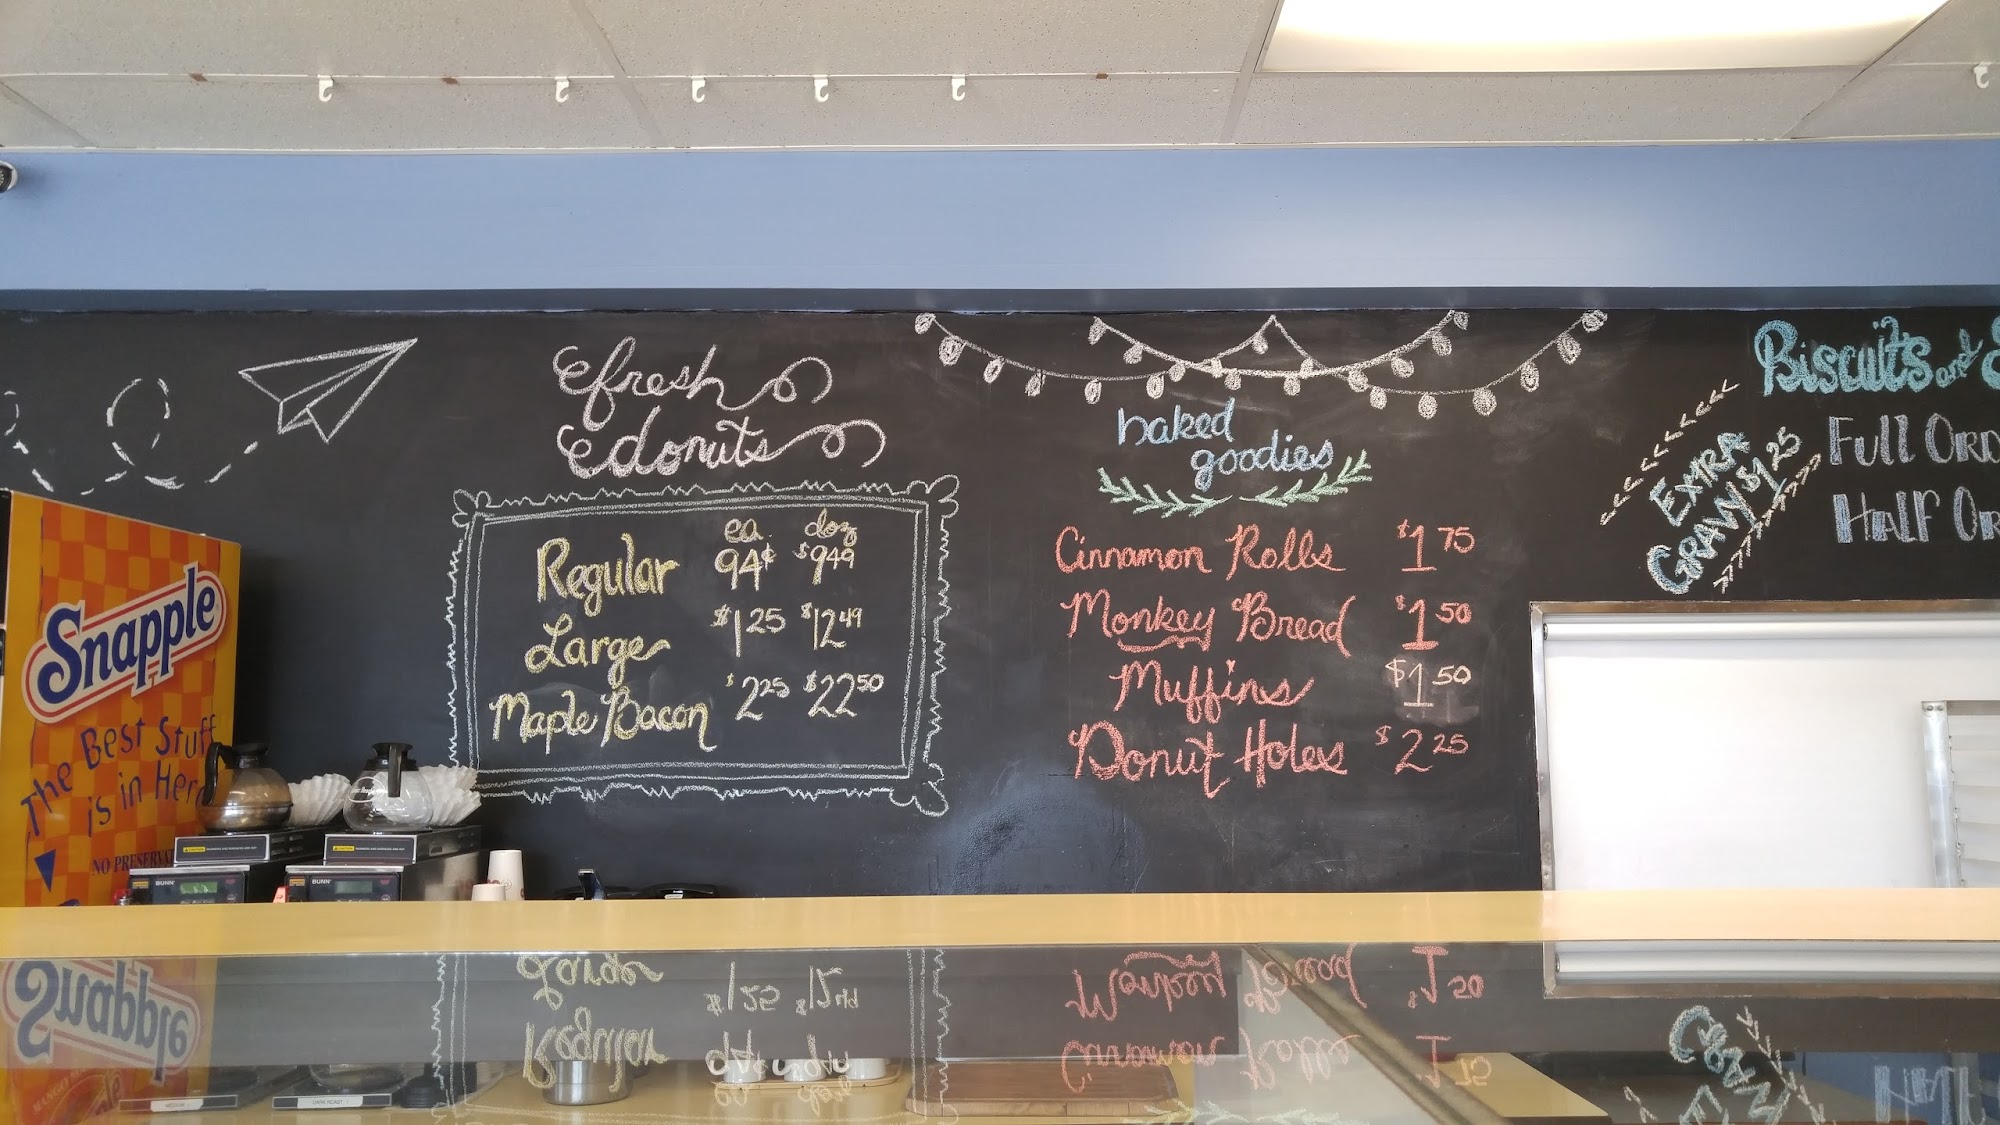 fresh
donuts
ea. doz
Regular 94¢ $9.49
Large $1.25 $12.49
Maple Bacon $2.25 $22.50
baked
goodies
Cinnamon Rolls $1.75
Monkey Bread $1.50
Muffins $1.50
Donut Holes $2.25
Biscuits and
Full
Half
EXTRA
GRAVY $1.25
Snapple
The Best Stuff
is in Here
NO
BUNN
BUNN